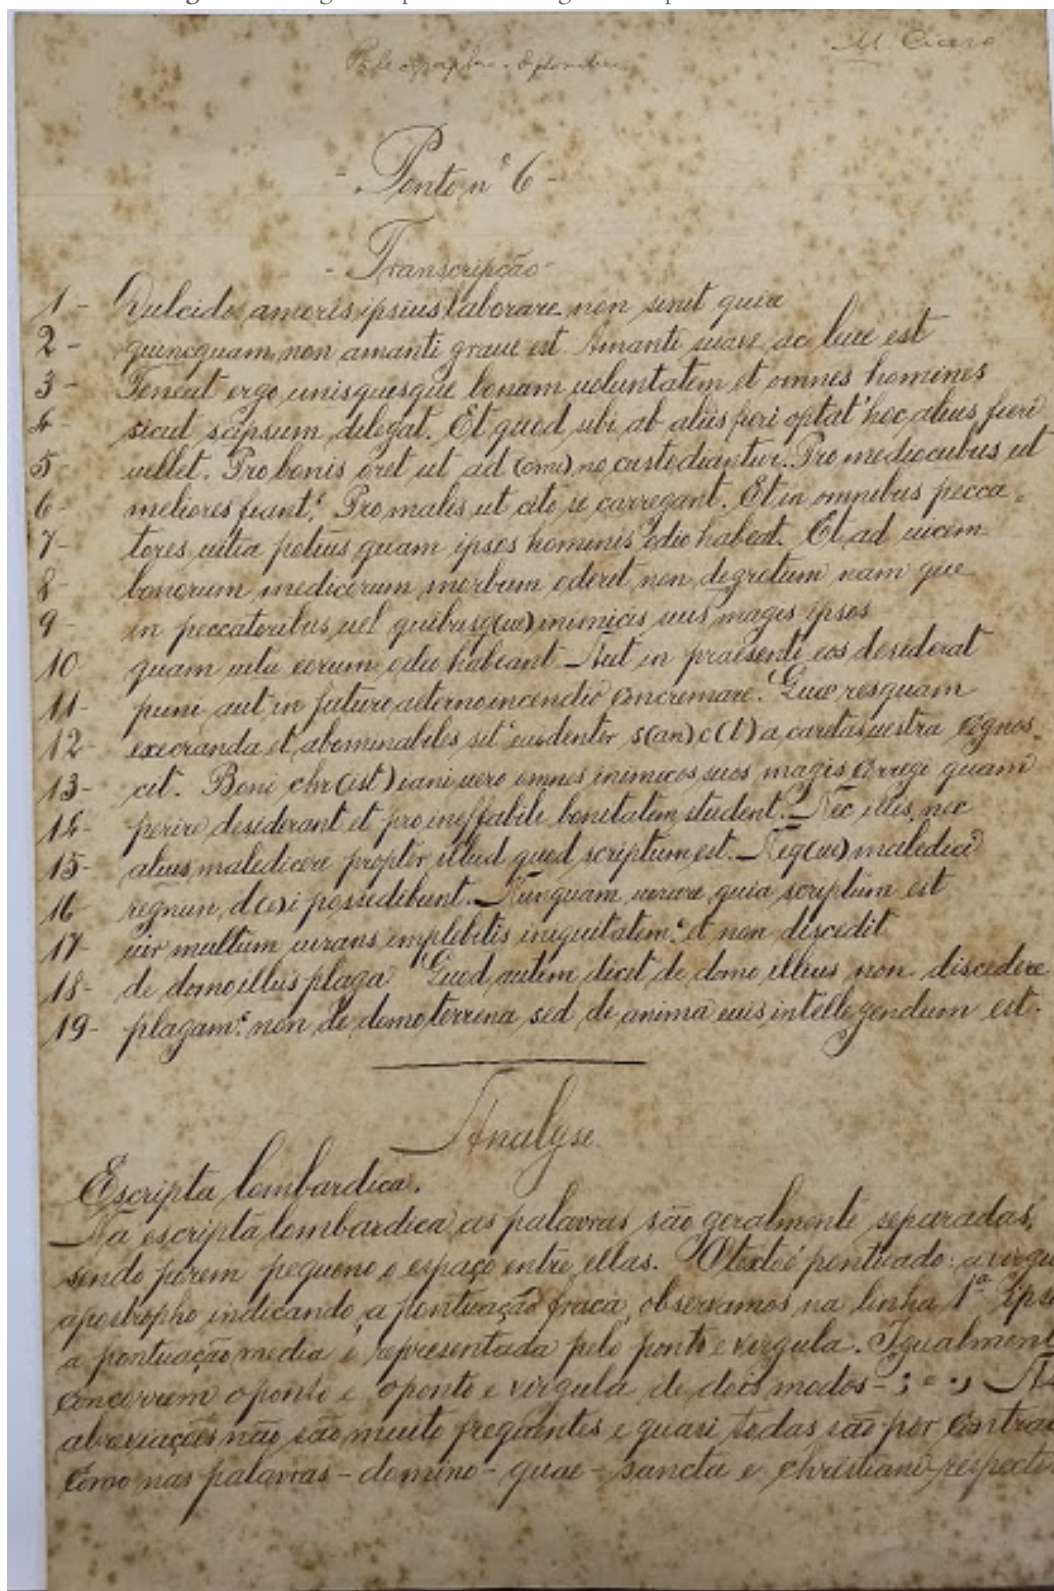 M Cicero
Paleographia - diplomatica
- Ponto nº 6 -
- Transcripção -
1 - Dulcido amoris ipsius laborare non sinit quia
2 - quincquam non amanti graue est. Amanti suave ac leue est
3 - Teneat ergo unisquesque bonam uoluntatem et omnes homines
4 - sicut sapsum diligat. Et quod sibi ab aliis fieri optat hoc aliis fieri
5 - uellet. Pro bonis oret ut ad (omi) no custodiantur. Pro mediocribus ut
6 - meliores fiant. Pro malis ut cito se carregant. Et in omnibus pecca-
7 - tores uitia potius quam ipsos hominis odio habeat. Et ad uicem
8 - bonorum medicorum morbum oderit non degrotum nam que
9 - in peccatoribus uel quibusq(ue) inimicis suis magis ipsos
10 quam uitia eorum odio habeant Aut in praesenti eos desiderat
11 - puni aut in futuro aeterno incendio concremare. Quae res quam
12 - execranda et abominabiles sit euidenter s(an)c(t)a caritas uestra cognos-
13 - cit. Boni chr(ist)iani uero omnes inimicos suos magis corregi quam
14 - perire desiderant et pro ineffabile bonitatem student. Nec illis nec
15 - alius maledicere propter illud quod scriptum est. Neq(ue) maledici
16 regnun d(e)i possedebunt. Nunquam iurare quia scriptum est
17 - uir multum iurans implebitis iniquitatem. et non discedit
18 - de domo illius plaga Quod autem dicit de domo illius non discedere
19 - plagam. non de domo terrena sed de anima eius intellegendum est.
Analyse
Escripta lombardica.
Na escripta lombardica as palavras são geralmente separadas,
sendo porem pequeno o espaço entre ellas. O texto é pontuado: a virgu
apostropho indicando a pontuação fraca, observamos na linha 1ª ips
a pontuação media é representada pelo ponto e virgula. Igualment
concorrem o ponto e o ponto e virgula de dois modos - ; e ., As
abreviações não são muito frequentes e quasi todas são por contrac
como nas palavras - domino - quae - sancta e christiani - respecti